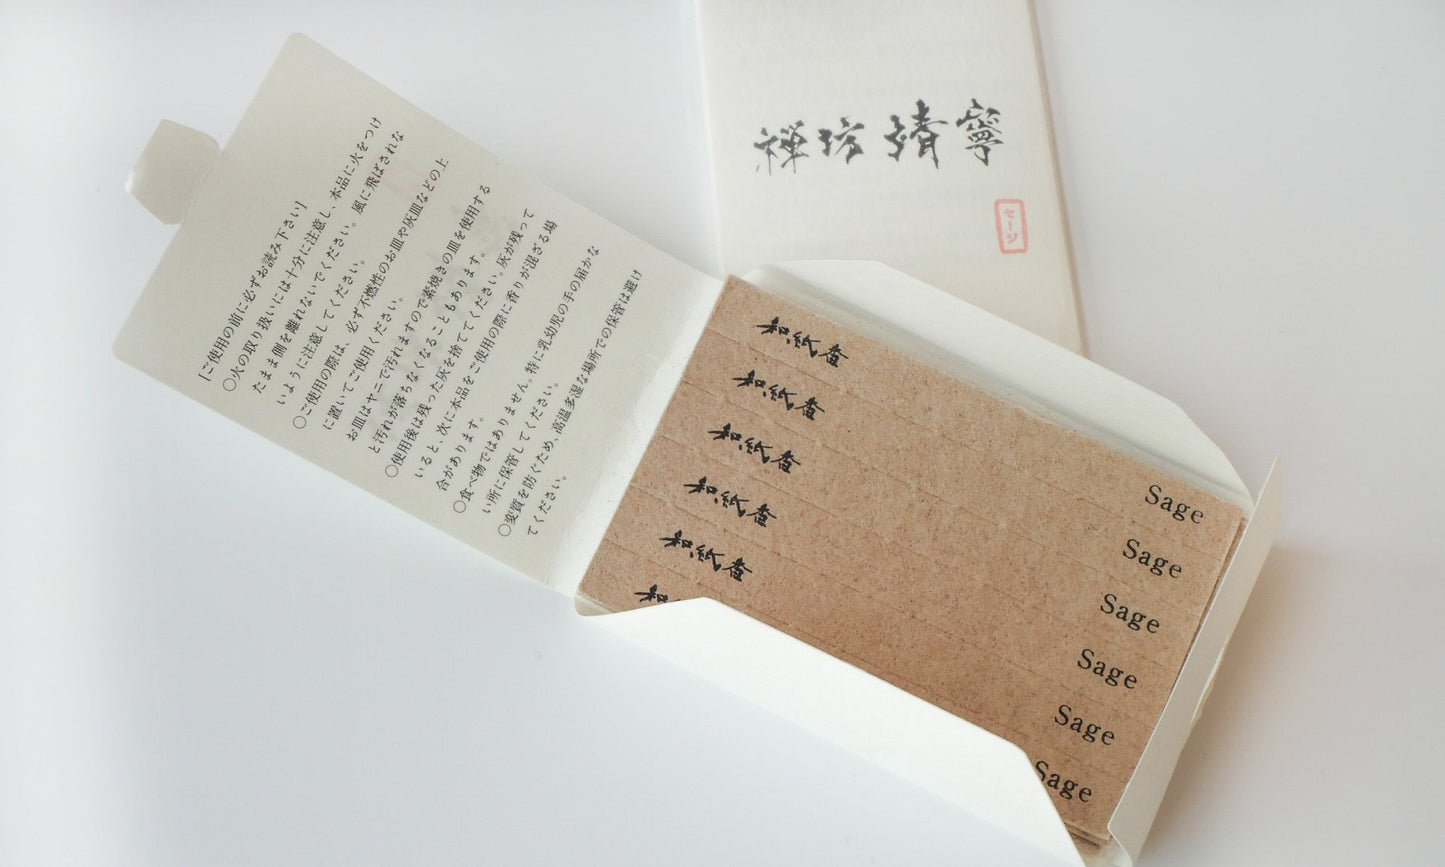 「ご使用の前に必ずお読み下さい」
○火の取り扱いには十分に注意し、本品に火をつけ
たまま側を離れないでください。風に飛ばされな
いように注意してください。
○ご使用の際は、必ず不燃性のお皿や灰皿などの上
に置いてご使用ください。
お皿はヤニで汚れますので素焼きの皿を使用する
と汚れが落ちなくなることもあります。
○使用後は残った灰を捨ててください。灰が残って
いると、次に本品をご使用の際に香りが混ざる場
合があります。
○食べ物ではありません。特に乳幼児の手の届かな
い所に保管してください。
○変質を防ぐため、高温多湿な場所での保管は避け
てください。
禅坊靖寧
セージ
和紙香 Sage
和紙香 Sage
和紙香 Sage
和紙香 Sage
和紙香 Sage
和 Sage